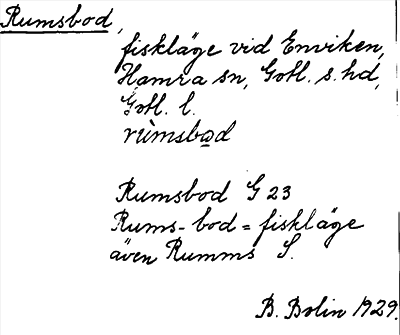 Rumsbod,
fiskläge vid Enviken,
Hamra sn, Gotl. s. hd,
Gotl. l.
rùmsbod
Rumsbod G 23
Rums-bod = fiskläge
även Rumms S.
B. Bolin 1929.